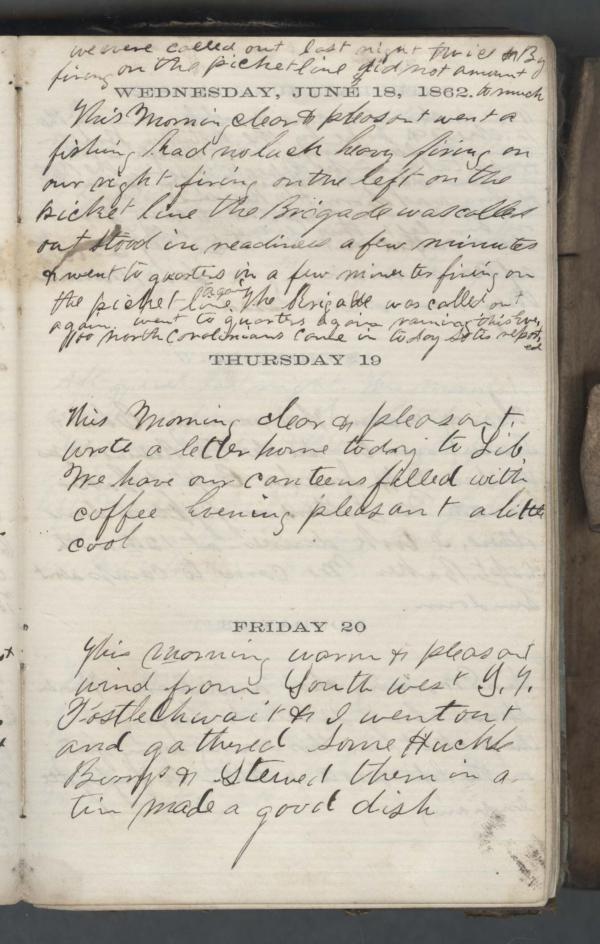 we were called out last night twice & By
firing on the picket line did not amount
WEDNESDAY, JUNE 18, 1862. to much
This Morning clear & pleasant went a
fishing had no luck heavy firing on
our right firing on the left on the
picket line the Brigade was called
out stood in readiness a few minutes
& went to quarters in a few minutes firing on
the picket line again The Brigade was called out
again went to quarters again raining this Eve,
700 north Carolinians came in to day so tis report,
ed
THURSDAY 19
This Morning clear & pleasant,
wrote a letter home to day to Lib,
We have our canteens filled with
coffee Evening pleasant a little
cool
FRIDAY 20
This Morning warm & pleasant
wind from South west
Postlethwait & I went out
and gathered some Huckle
Berrys & Stewed them in a
tin made a good dish